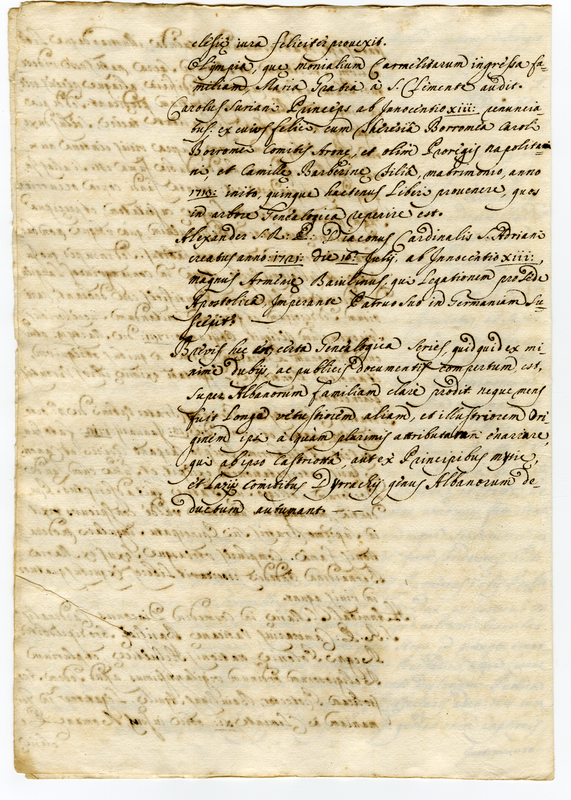 clesiæ iura feliciter provexit.
Olympia, quæ monialium Carmelitarum ingressa fa-
miliam, Maria Gratia à S. Clemente audit.
Carolus Suriani Princeps ab Innocentio XIII: renuncia
tus: ex cuius felici cum Theresia Borromea Caroli
Borromei Comitis Aronæ, et olim Proregis napolita-
ni, et Camillæ Barberinæ filia, matrimonio, anno
inito, quinque hactenus Liberi provenere, quos
in arbore Genealogica reperire est.
Alexander S. R: E: Diaconus Cardinalis S. Adriani
creatus anno: 1721: die 16: Julij ab Innocentio XIII:,
magnus Armeniæ Baiulinus, qui Legationem pro Sede
Apostolica Imperante Patruo suo in Germaniam su-
scepit.
Brevis hæc est, electa Genealogica series, quidquid ex mi-
nime dubijs, ac publicis documentis compertum est,
super Albanorum familiam clare prodit neque mens
fuit Longè vetustiorem aliam, et illustriorem Ori
ginem ipsi à quam plurimis attributam enarrare,
qui ab ipso Castriotta, aut ex Principibus mysiæ,
et Comitibus Dyrrachij genus Albanorum de-
ductum autumant